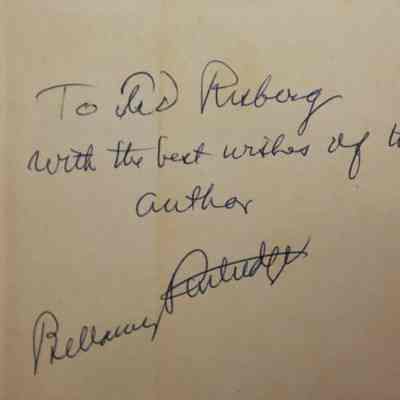 To Ted Ruberg
with the best wishes of t
author
Bellamy Partridge